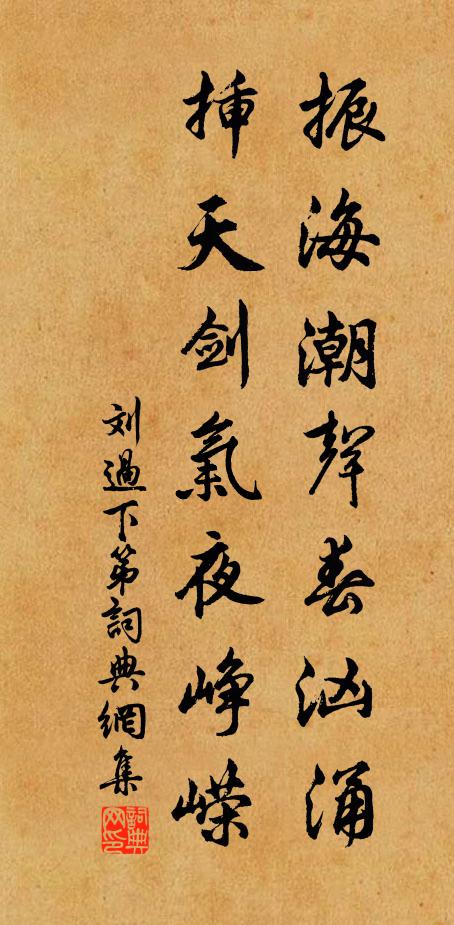 振海潮聲春洶涌
挿天劍氣夜崢嶸
刘過下第詞典網集
詞典網印